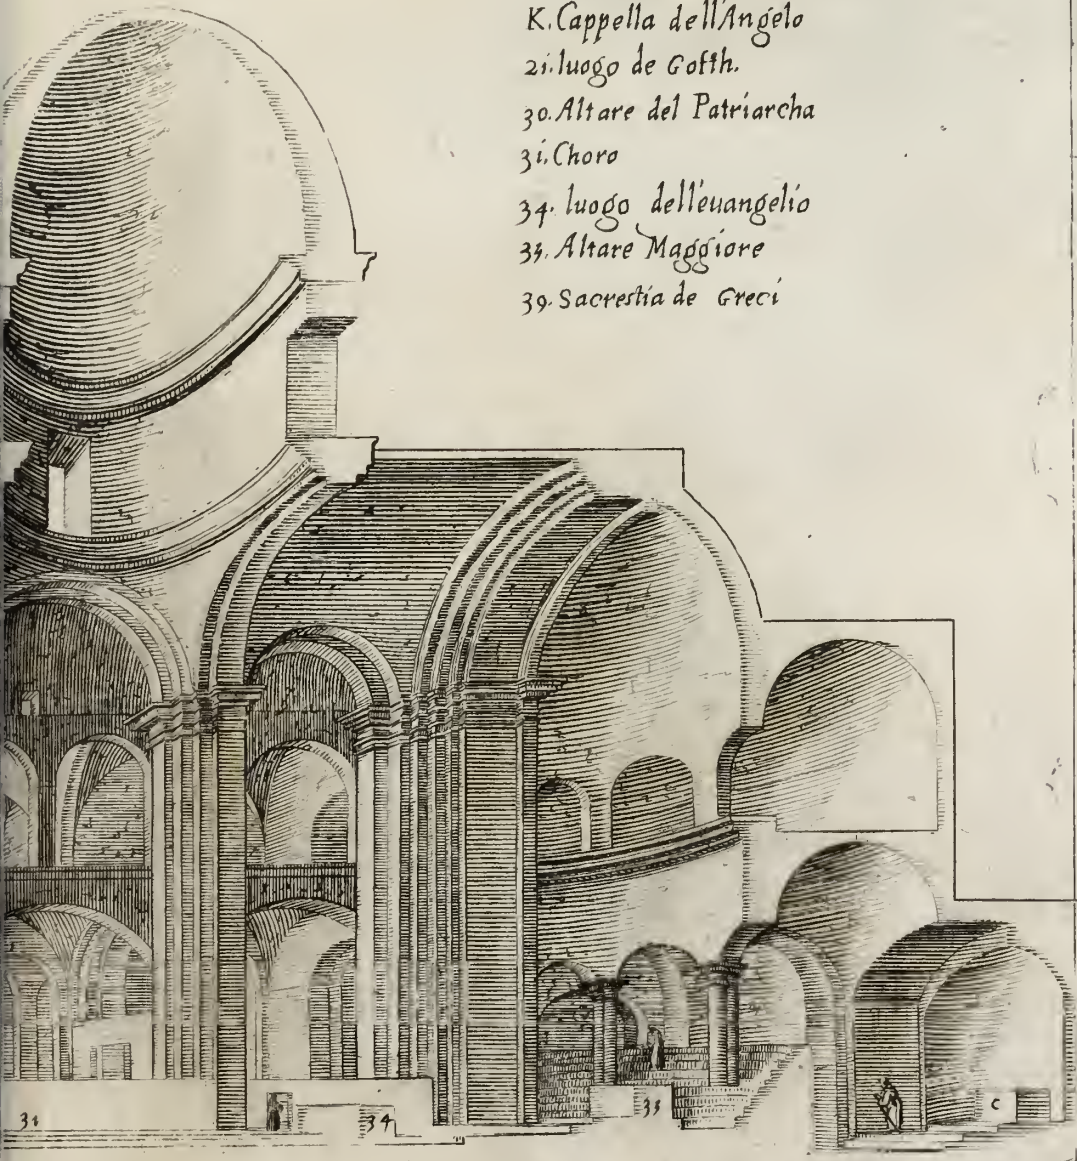 K. Cappella dell'Angelo
21. luogo de Goffh.
30. Altare del Patriarcha
31. Choro
34. luogo dell'euangelio
33. Altare Maggiore
39. Sacrestia de Greci
31 34 33 C